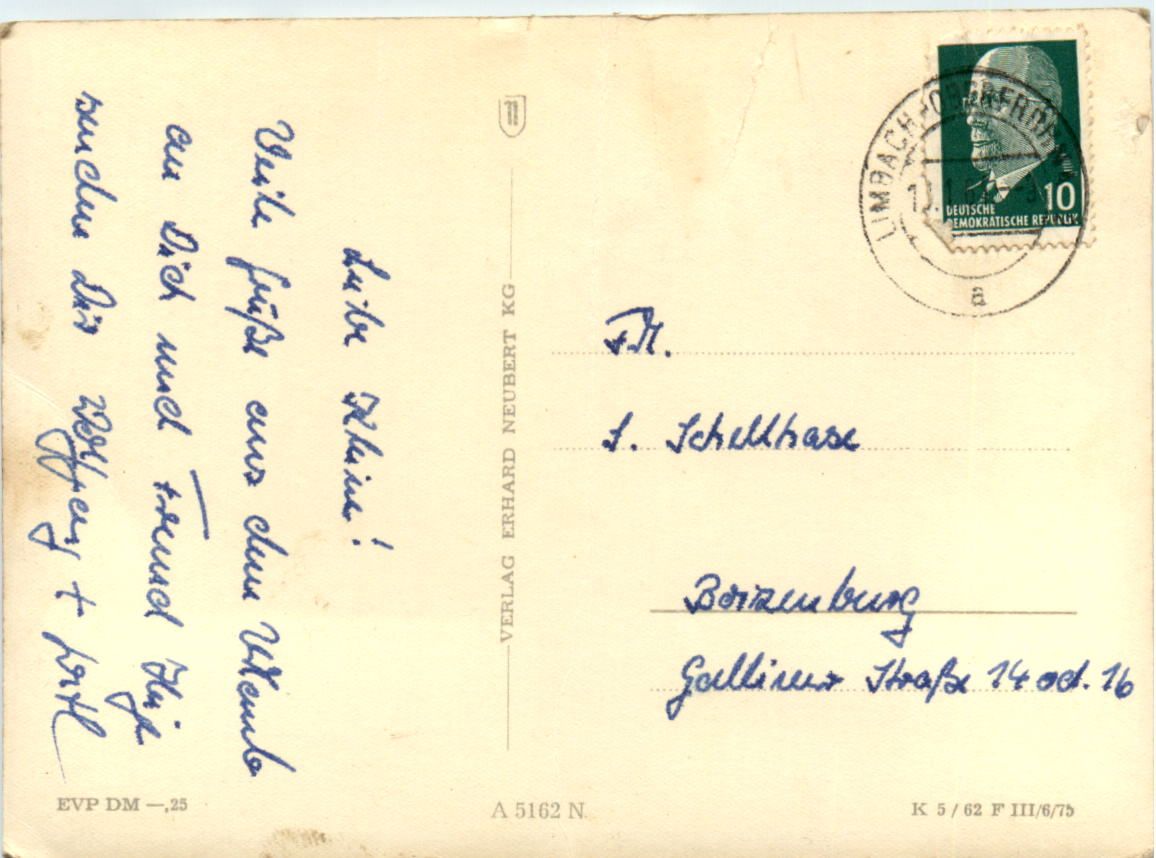 Liebe Kleine!
Viele Grüße aus dem Urlaub
an Dich und Freund Hugo
senden Dir Wolfgang +
VERLAG ERHARD NEUBERT KG
LIMBACH-OBERFROHNA
a
10
DEUTSCHE
DEMOKRATISCHE REPUBLIK
Frl.
S. Schellhase
Boizenburg
Galliner Straße 14 od. 16
EVP DM —,25
A 5162 N
K 5/62 F III/6/75